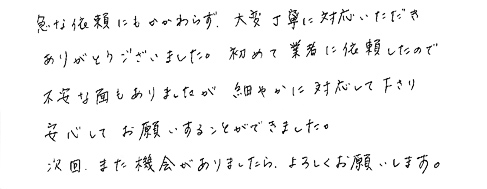 急な依頼にもかかわらず、大変丁寧に対応いただき
ありがとうございました。初めて業者に依頼したので
不安な面もありましたが 細やかに対応して下さり
安心してお願いすることができました。
次回、また機会がありましたら、よろしくお願いします。